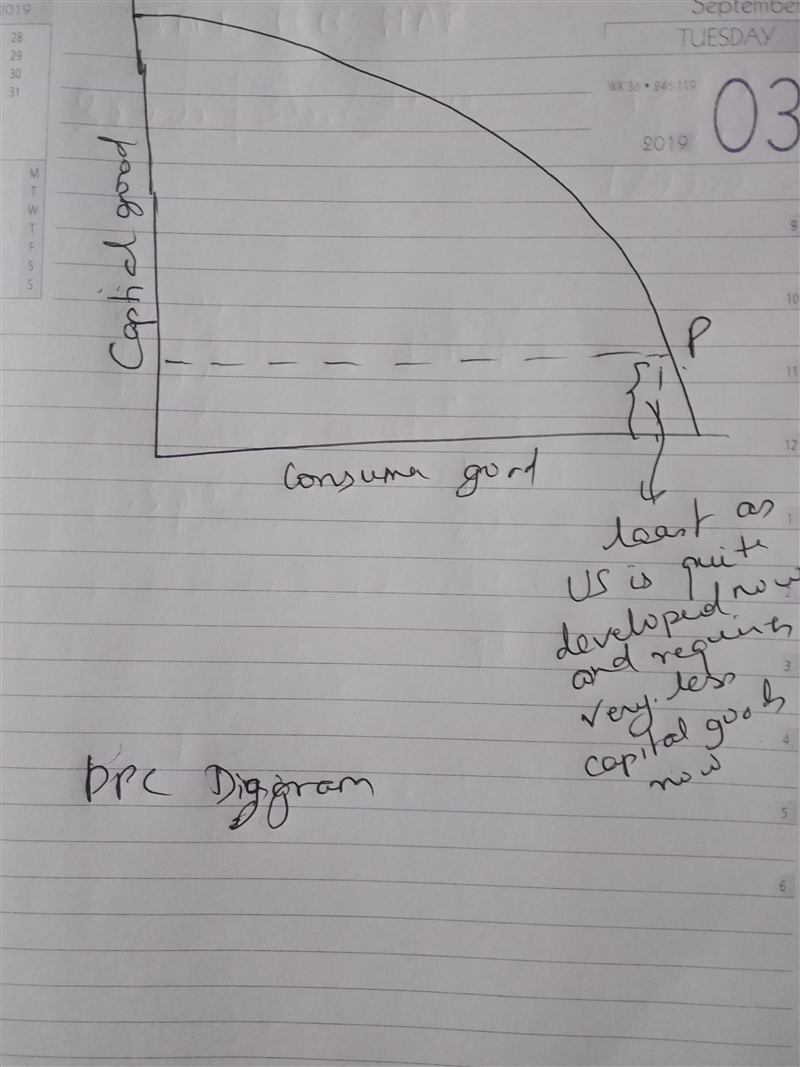 2019
September
TUESDAY
28
29
30
31
WK 36 • 246-119
2019
03
M
T
W
T
F
S
S
Captial good
P
9
10
11
12
Consumer good
least as
US is quite
developed now
and requires
very less
capital goods
now
1
2
3
4
5
6
PPC Diggram